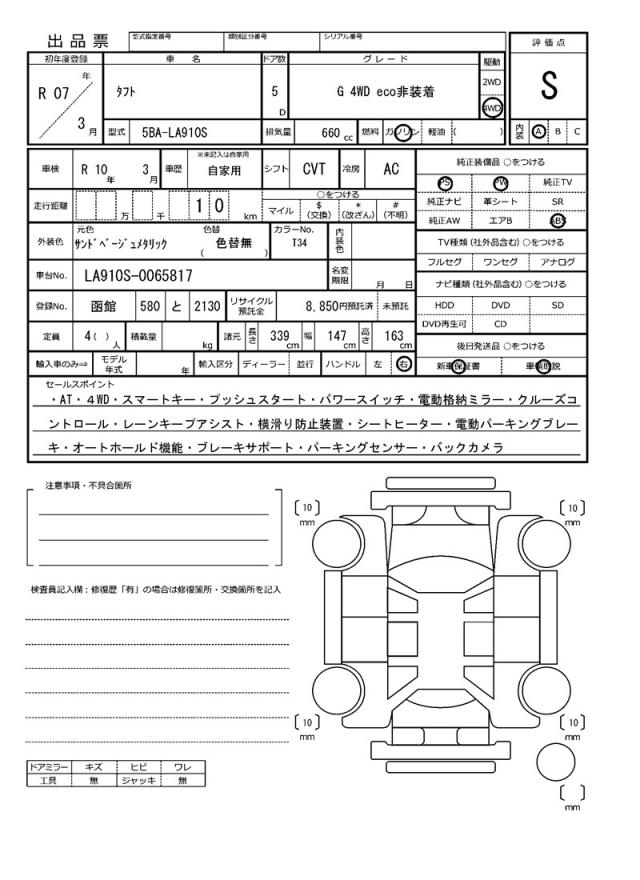 出品票
型式指定番号
類別区分番号
シリアル番号
評価点
S
初年度登録
車名
ドア数
グレード
駆動
R 07 年
3 月
タフト
5 D
G 4WD eco非装着
2WD
4WD
型式
5BA-LA910S
排気量
660 cc
燃料
ガソリン
軽油
( )
内装
A
B
C
車検
R 10 年 3 月
車歴
※未記入は自家用
自家用
シフト
CVT
冷房
AC
純正装備品 ○をつける
PS
PW
純正TV
純正ナビ
革シート
SR
純正AW
エアB
ABS
走行距離
万
千
1 0
km
○をつける
マイル
$ (交換)
* (改ざん)
# (不明)
外装色
元色
サンドベージュメタリック
色替
( 色替無 )
カラーNo.
T34
内装色
TV種類(社外品含む)○をつける
フルセグ
ワンセグ
アナログ
車台No.
LA910S-0065817
名変期限
月 日
ナビ種類(社外品含む)○をつける
HDD
DVD
SD
DVD再生可
CD
登録No.
函館
580
と
2130
リサイクル預託金
8,850円預託済
未預託
定員
4( ) 人
積載量
kg
諸元
長さ
339 cm
幅
147 cm
高さ
163 cm
後日発送品 ○をつける
新車保証書
車輌取説
輸入車のみ⇒
モデル年式
年
輸入区分
ディーラー
並行
ハンドル
左
右
セールスポイント
・AT・4WD・スマートキー・プッシュスタート・パワースイッチ・電動格納ミラー・クルーズコ
ントロール・レーンキープアシスト・横滑り防止装置・シートヒーター・電動パーキングブレー
キ・オートホールド機能・ブレーキサポート・パーキングセンサー・バックカメラ
注意事項・不具合箇所
検査員記入欄：修復歴「有」の場合は修復箇所・交換箇所を記入
[10] mm
[10] mm
[10] mm
[10] mm
[ ] mm
ドアミラー
キズ
ヒビ
ワレ
工具
無
ジャッキ
無